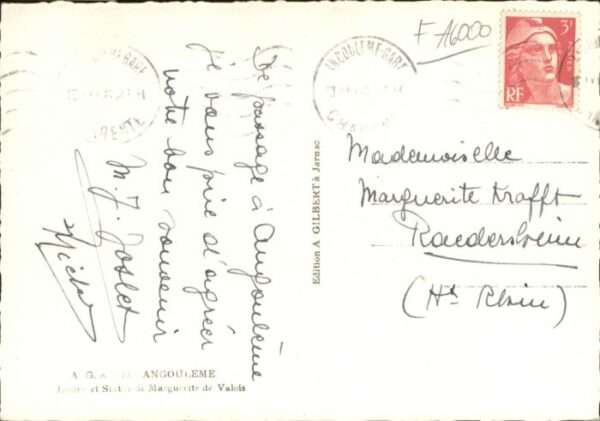 F A6000
3F
POSTES
RF
ANGOULEME-GARE
De passage à Angoulême
je vous prie d'agréer
notre bon souvenir
M. J. Joslet
Michel
Mademoiselle
Marguerite Krafft
Raedersheim
(Ht Rhin)
Edition A GILBERT à Jarnac
A. G. ANGOULEME
et Statue de Marguerite de Valois